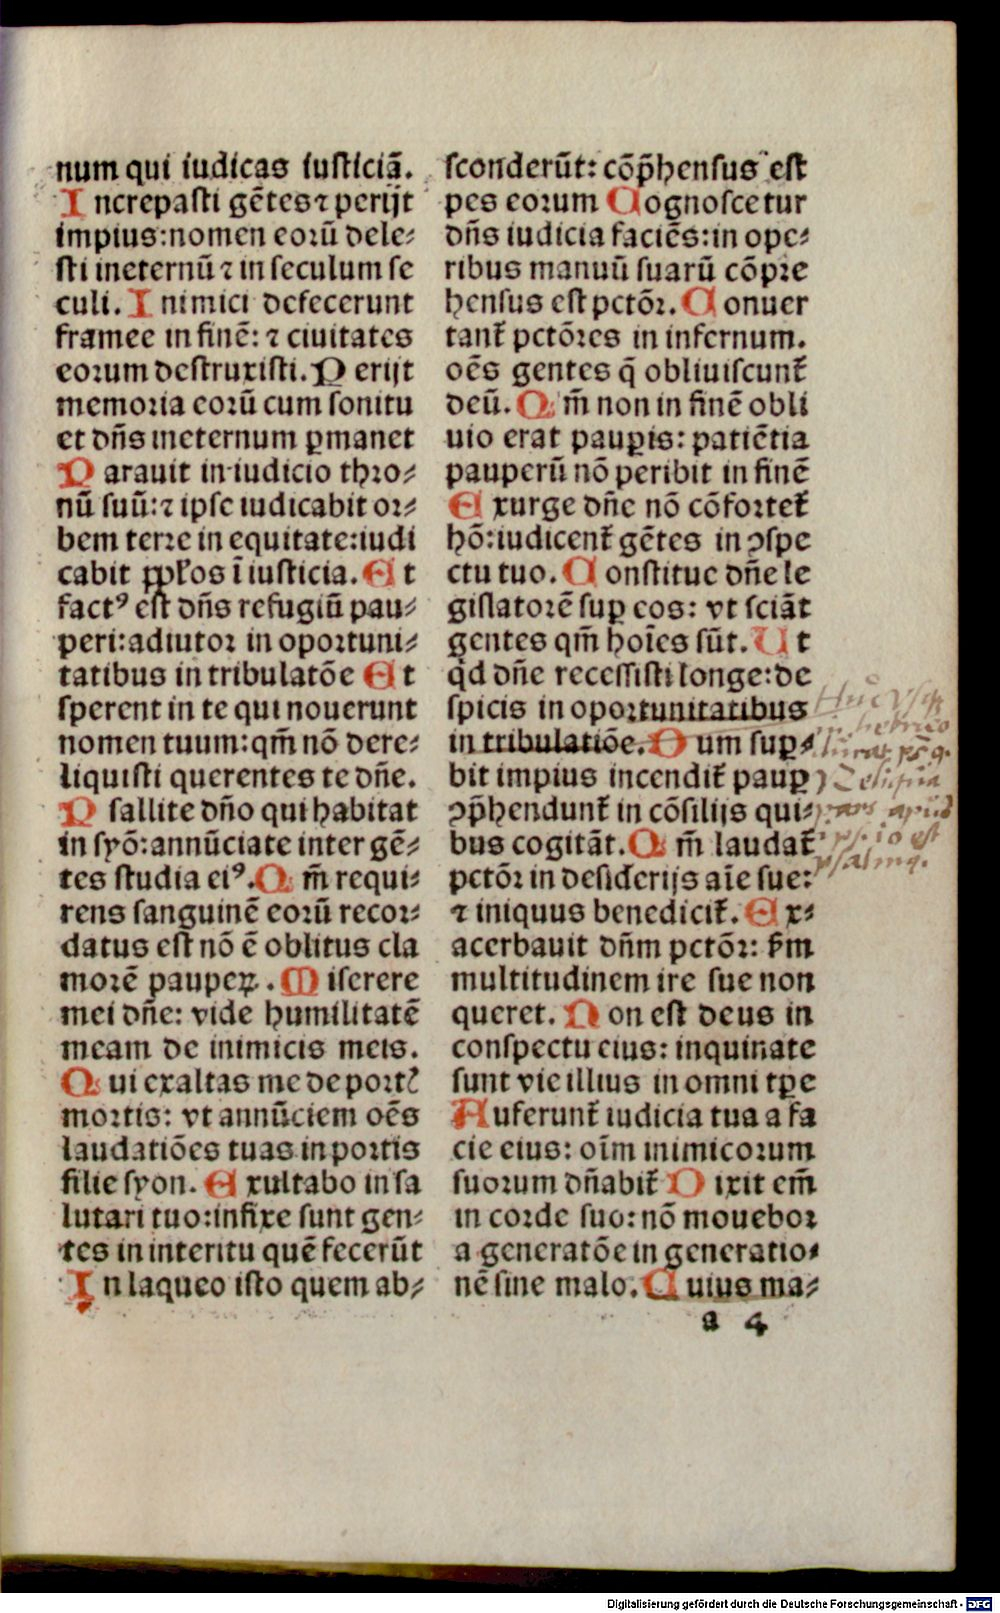 num qui iudicas iusticiā.
Increpasti gētes ⁊ perijt
impius: nomen eorū dele⸗
sti ineternū ⁊ in seculum se
culi. Inimici defecerunt
framee in finē: ⁊ ciuitates
eorum destruxisti. Perijt
memoria eorū cum sonitu
et dn̄s ineternum ꝑmanet
Parauit in iudicio thro⸗
nū suū: ⁊ ipse iudicabit or⸗
bem terre in equitate: iudi
cabit pp̄los ī iusticia. Et
factꝰ est dn̄s refugiū pau⸗
peri: adiutor in oportuni⸗
tatibus in tribulatōe Et
sperent in te qui nouerunt
nomen tuum: qm̄ nō dere⸗
liquisti querentes te dn̄e.
Psallite dn̄o qui habitat
in syō: annūciate inter gē⸗
tes studia eiꝰ. Qm̄ requi⸗
rens sanguinē eorū recor⸗
datus est nō ē oblitus cla
morē pauperꝝ. Miserere
mei dn̄e: vide humilitatē
meam de inimicis meis.
Qui exaltas me de portꝭ
mortis: vt annūciem oēs
laudatiōes tuas in portis
filie syon. Exultabo in sa
lutari tuo: infixe sunt gen⸗
tes in interitu quē fecerūt
In laqueo isto quem ab⸗
sconderūt: cōp̄hensus est
pes eorum Cognoscetur
dn̄s iudicia faciēs: in ope⸗
ribus manuū suarū cōpre
hensus est pctōr. Conuer
tant᷑ pctōres in infernum.
oēs gentes q̄ obliuiscunt᷑
deū. Qm̄ non in finē obli
uio erat pauꝑis: patiētia
pauperū nō peribit in finē
Exurge dn̄e nō cōfortet᷑
hō: iudicent᷑ gētes in ꝯspe
ctu tuo. Constitue dn̄e le
gislatorē suꝑ eos: vt sciāt
gentes qm̄ hoīes sūt. Ut
qd̄ dn̄e recessisti longe: de
spicis in oportunitatibus
in tribulatiōe. Dum suꝑ⸗
bit impius incendit᷑ pauꝑ
ꝯp̄hendunt᷑ in cōsilijs qui⸗
bus cogitāt. Qm̄ laudat᷑
pctōr in desiderijs aīe sue:
⁊ iniquus benedicit᷑. Ex⸗
acerbauit dn̄m pctōr: s̄m
multitudinem ire sue non
queret. Non est deus in
conspectu eius: inquinate
sunt vie illius in omni tꝑe
Auferunt᷑ iudicia tua a fa
cie eius: oīm inimicorum
suorum dn̄abit᷑ Dixit em̄
in corde suo: nō mouebor
a generatōe in generatio⸗
nē sine malo. Cuius ma⸗
a 4
Huc vsq;
hebreo
durat ps 9.
Reliqua
pars apud
ps. 10 est
psalmq.